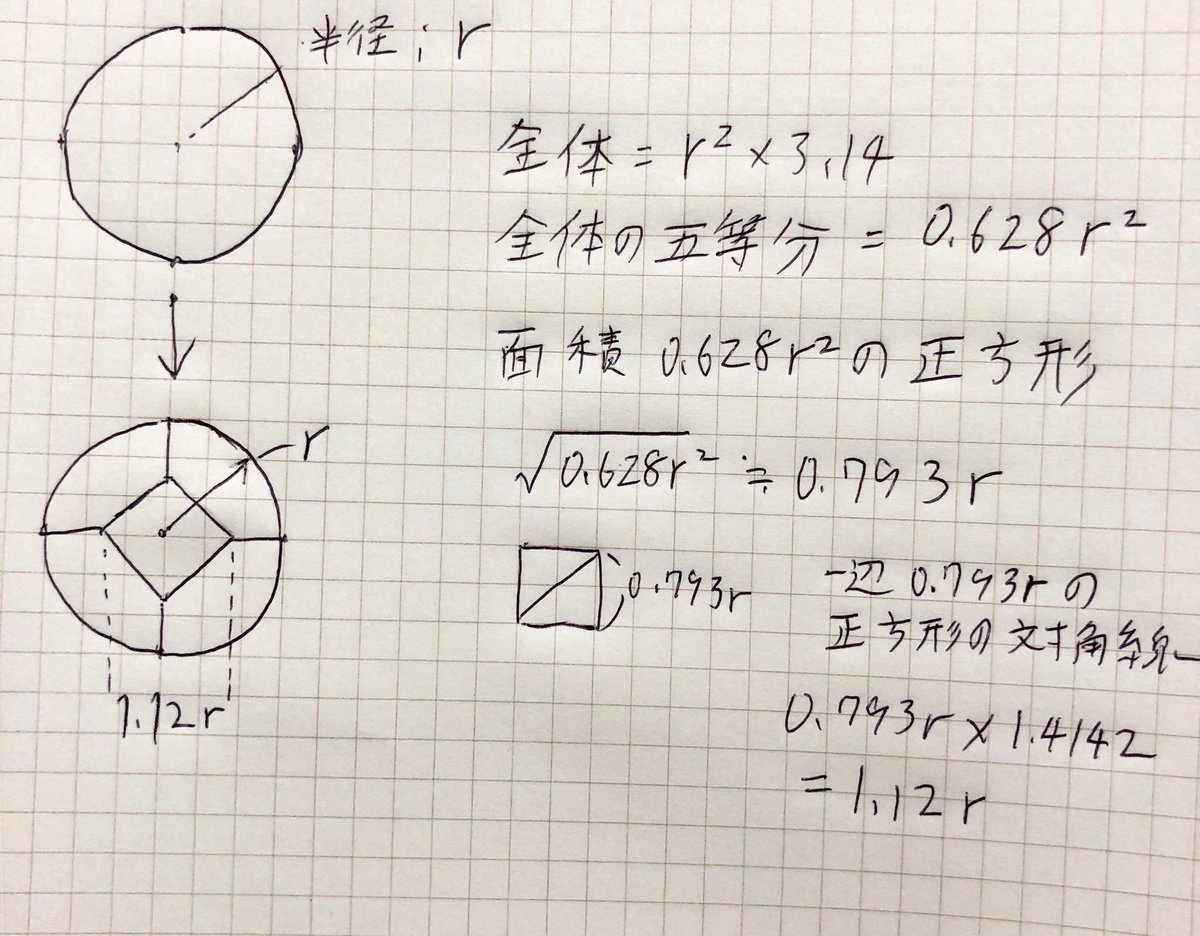 半径：r
全体 = r² × 3.14
全体の五等分 = 0.628r²
面積 0.628r²の正方形
√0.628r² ≒ 0.793r
r
0.793r
一辺 0.793rの
正方形の対角線
1.12r
0.793r × 1.4142
= 1.12r